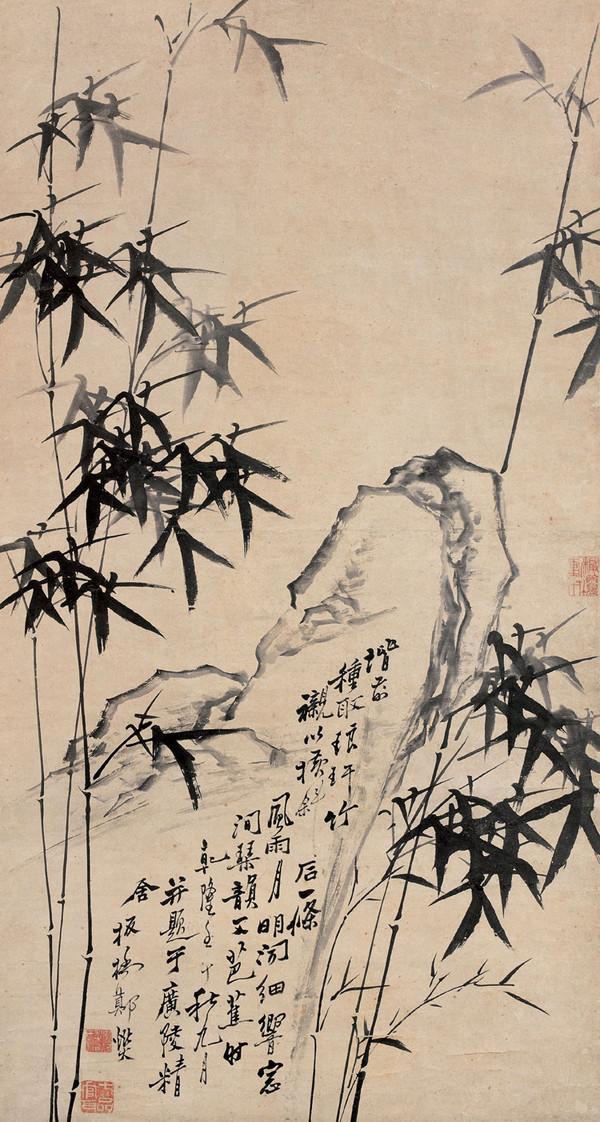 堦前
種取琅玕竹
襯以横斜
石一條
風雨月明聞細響窓
間琴韻芭蕉時
乾隆壬午秋九月
并題于廣陵精
舍板橋鄭燮